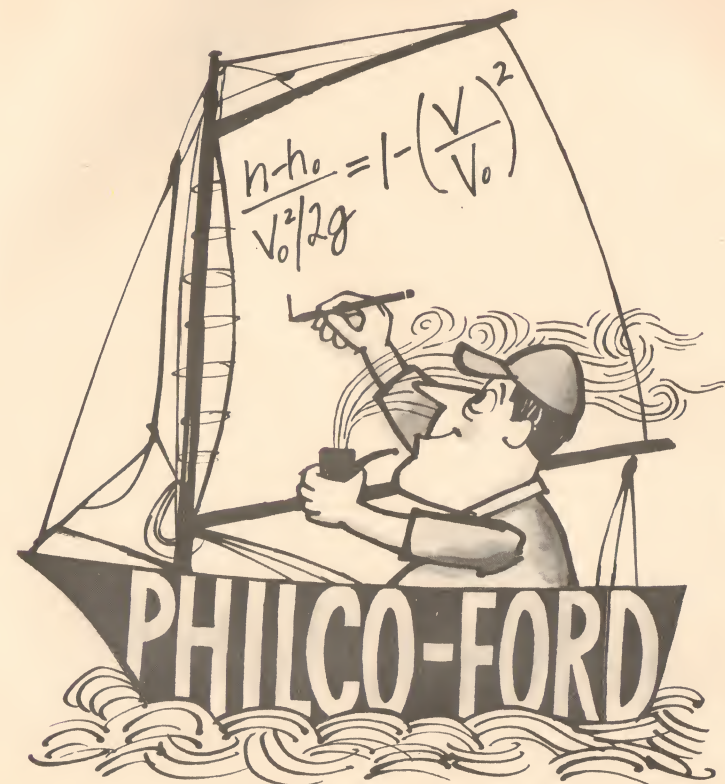 n-h₀ / V₀²/2g = 1-(V/V₀)²
PHILCO-FORD